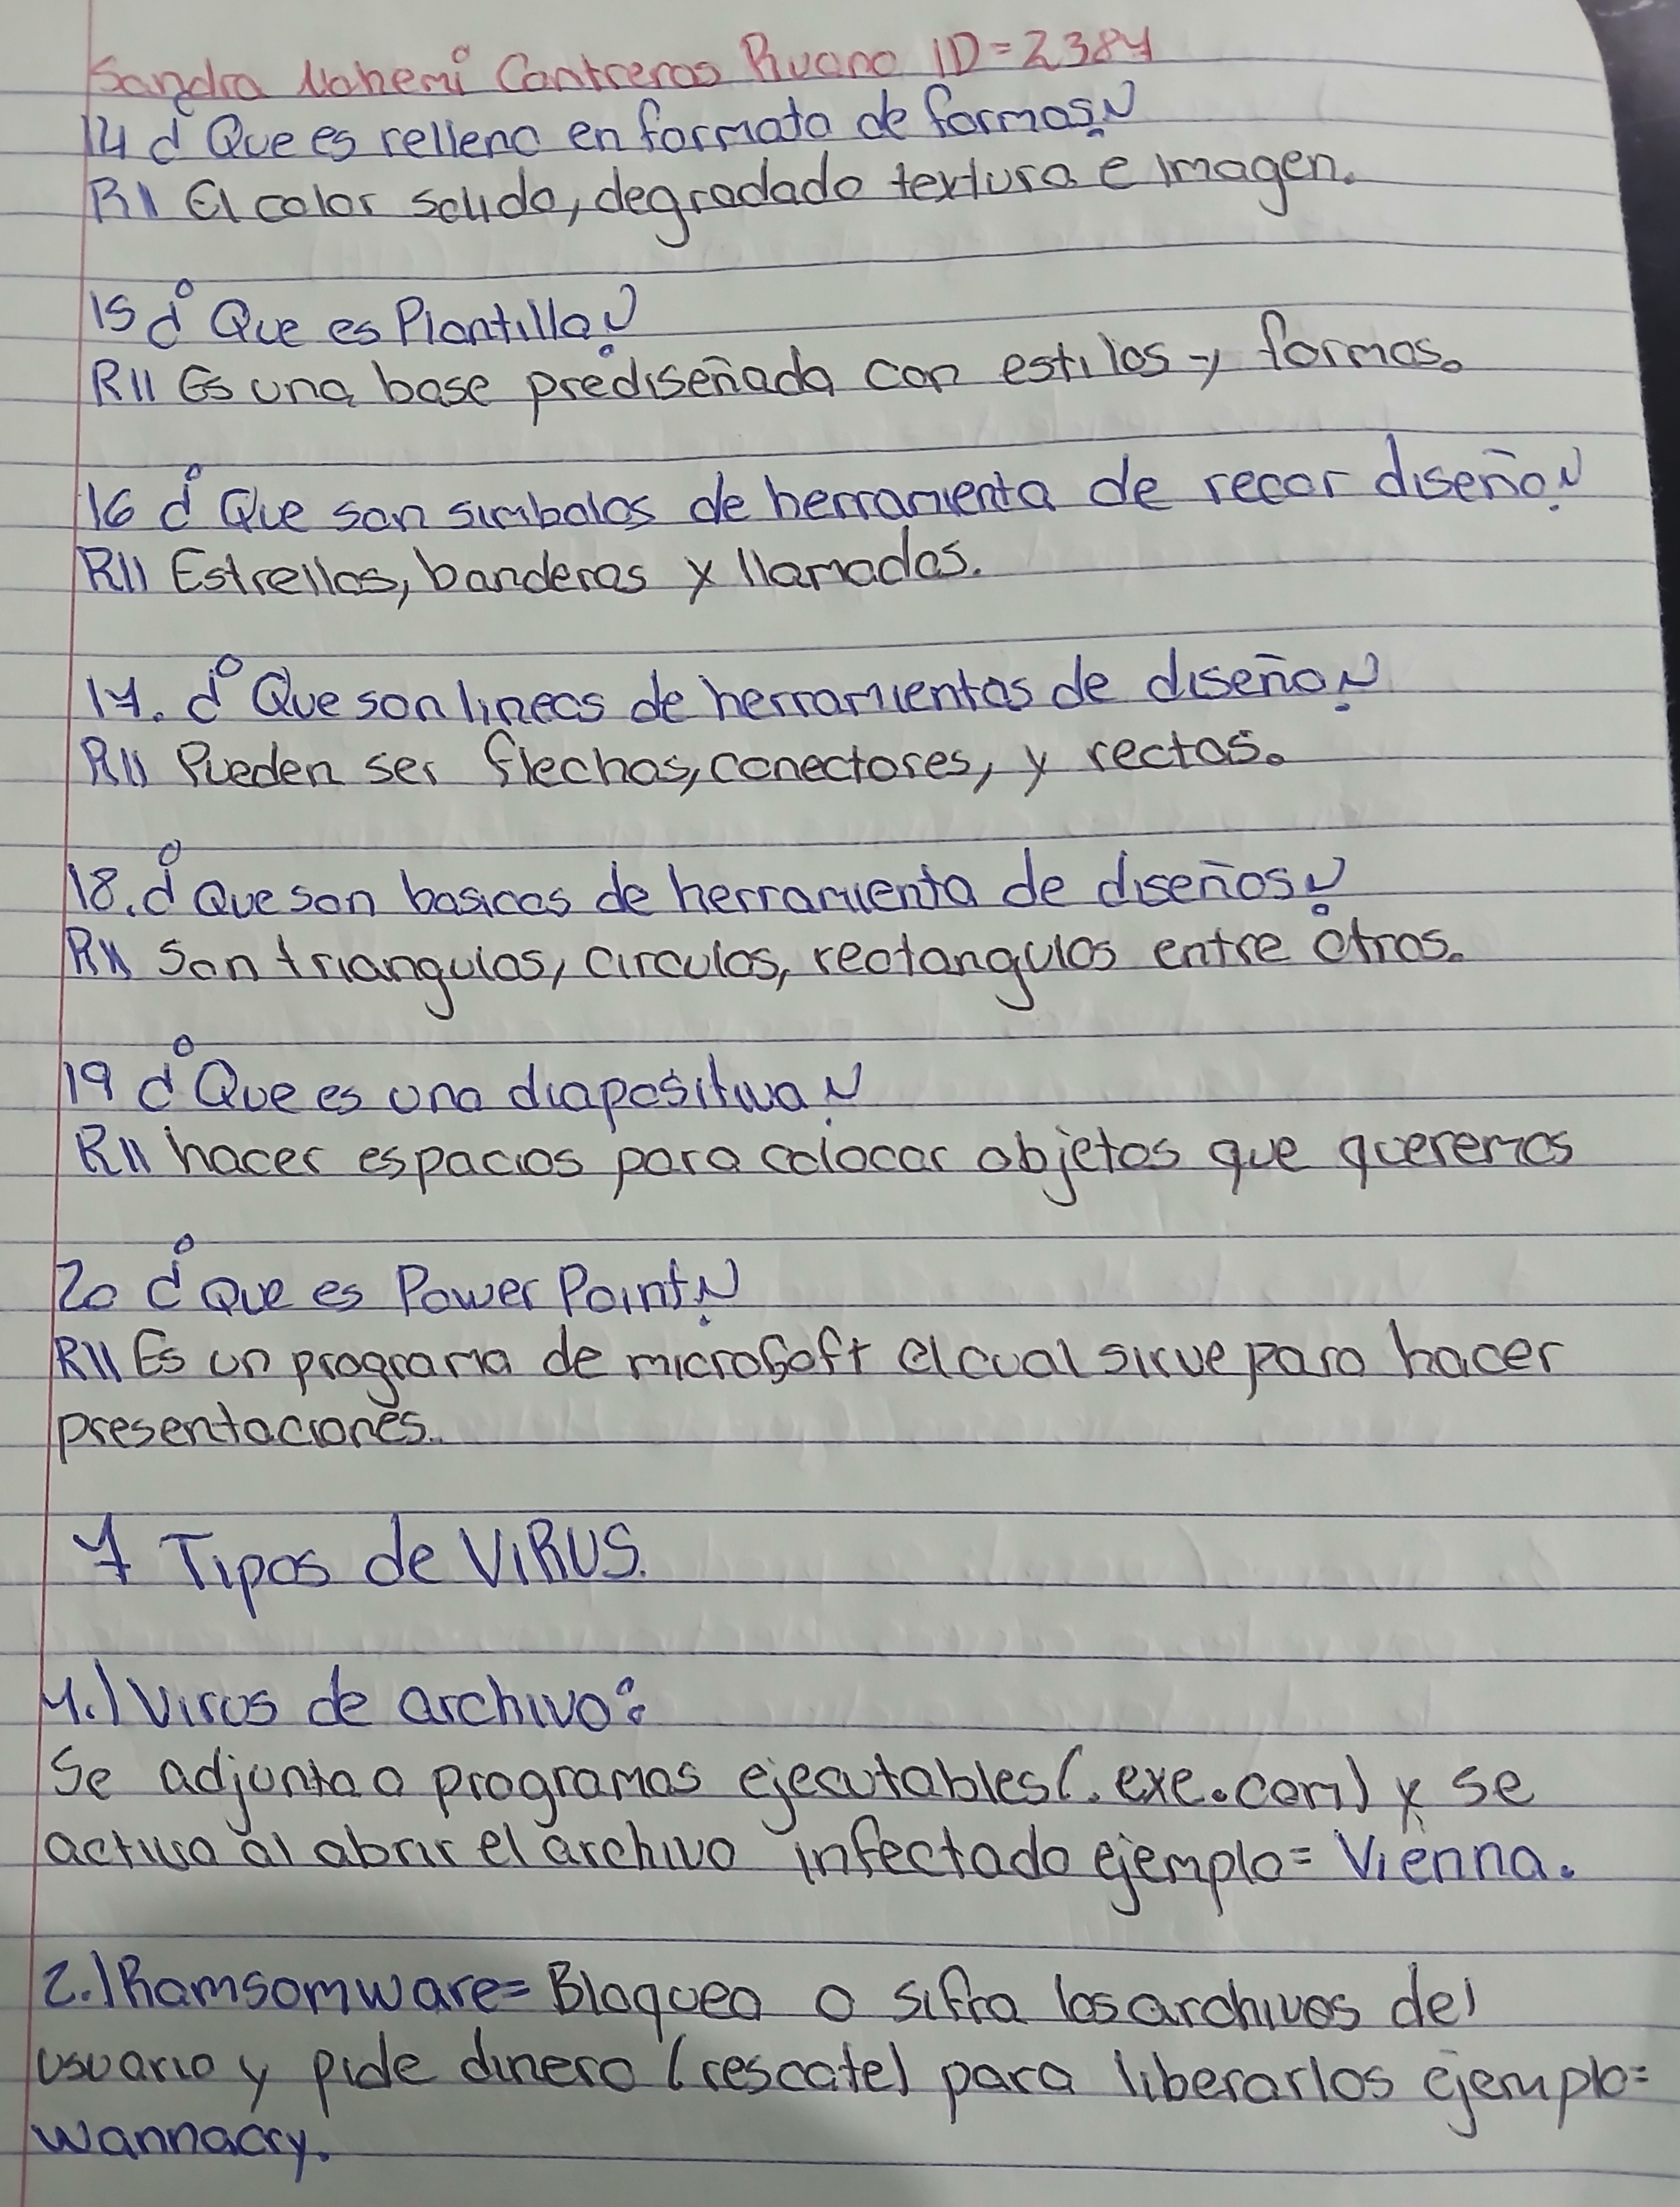 Sandra Nohemi Contreras Ruano ID=2387
14 ¿Que es relleno en formato de formas?
R// El color solido, degradado textura e imagen.
15 ¿Que es Plantilla?
R// Es una base prediseñada con estilos y formas.
16 ¿Que son simbolos de herramienta de recor diseño?
R// Estrellas, banderas y llamadas.
17. ¿Que son lineas de herramientas de diseño?
R// Pueden ser flechas, conectores, y rectas.
18. ¿Que son basicas de herramienta de diseños?
R// Son triangulos, circulos, rectangulos entre otros.
19 ¿Que es una diapositiva?
R// hacer espacios para colocar objetos que queremos
20 ¿Que es Power Point?
R// Es un programa de microsoft el cual sirve para hacer
presentaciones..
7 Tipos de ViRUS.
1.) Virus de archivo:
Se adjunta a programas ejecutables (.exe.com) y se
activa al abrir el archivo infectado ejemplo= Vienna.
2.) Ramsomware= Bloquea o sifra los archivos del
usuario y pide dinero (rescate) para liberarlos ejemplo=
wannacry.